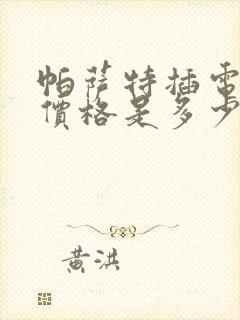 帕萨特插電
價格是多少
黄洪